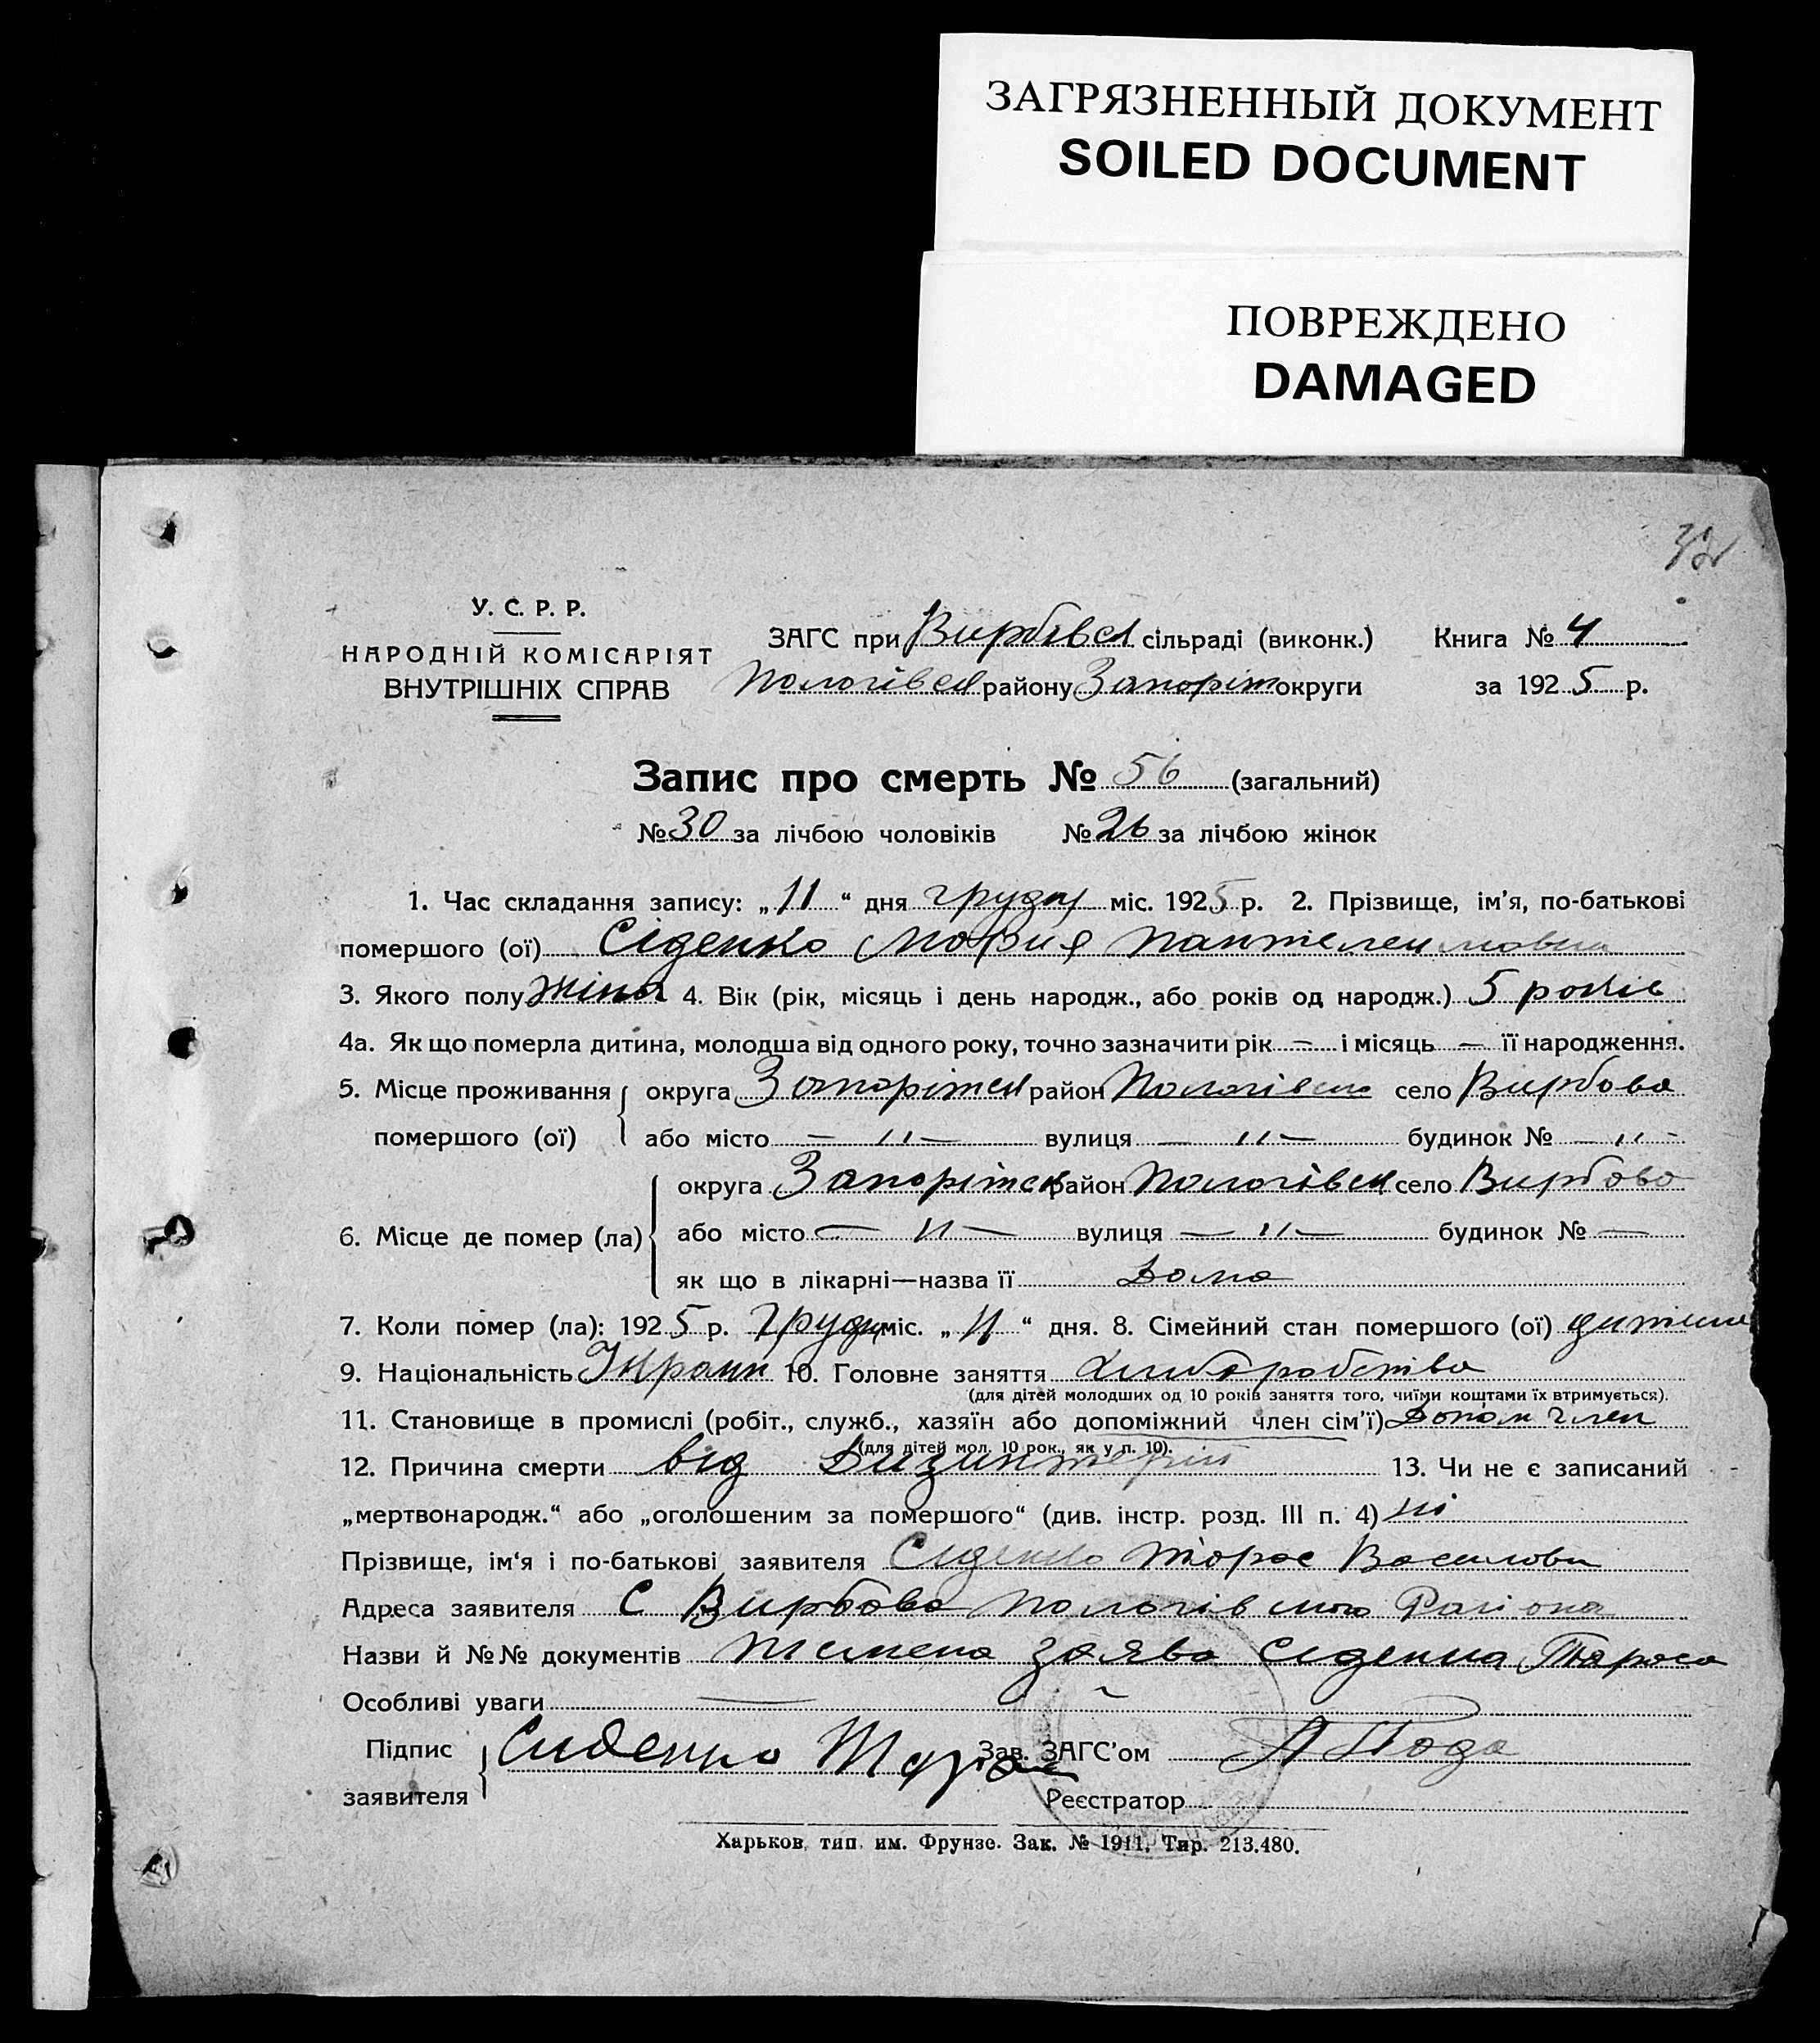 ЗАГРЯЗНЕННЫЙ ДОКУМЕНТ
SOILED DOCUMENT
ПОВРЕЖДЕНО
DAMAGED
У. С. Р. Р.
НАРОДНІЙ КОМІСАРІЯТ
ВНУТРІШНІХ СПРАВ
ЗАГС при Вирбівсь сільраді (виконк.) Книга № 4
Пологівськ району Запоріж округи за 1925 р.
Запис про смерть № 56 (загальний)
№ 30 за лічбою чоловіків № 26 за лічбою жінок
1. Час складання запису: „11“ дня грудн міс. 1925 р. 2. Прізвище, ім'я, по-батькові
помершого (ої) Сіденко Мария Пантелеимовна
3. Якого полу жіноч 4. Вік (рік, місяць і день народж., або років од народж.) 5 років
4а. Як що померла дитина, молодша від одного року, точно зазначити рік — і місяць — її народження.
5. Місце проживання округа Запоріжськ район Пологівськ село Вирбова
помершого (ої) або місто — 11 — вулиця — 11 — будинок № — 11 —
округа Запоріжськ район Пологівськ село Вирбово
6. Місце де помер (ла) або місто — 11 — вулиця — 11 — будинок № —
як що в лікарні—назва її Дома
7. Коли помер (ла): 1925 р. Грудн міс. „11“ дня. 8. Сімейний стан помершого (ої)
9. Національність Украин 10. Головне заняття Хлиборобства
(для дітей молодших од 10 років заняття того, чиїми коштами їх втримується).
11. Становище в промислі (робіт., служб., хазяїн або допоміжний член сім'ї) Допом член
(для дітей мол. 10 рок., як у п. 10).
12. Причина смерти від Дизинтерии 13. Чи не є записаний
„мертвонародж.“ або „оголошеним за помершого“ (див. інстр. розд. III п. 4) ні
Прізвище, ім'я і по-батькові заявителя Сиденко Тарас Василови
Адреса заявителя С Вирбова Пологівського Раіона
Назви й №№ документів заява Сиденка Тараса
Особливі уваги —
Підпис заявителя Сиденко Тарас Зав. ЗАГС'ом
Реєстратор
Харьков, тип. им. Фрунзе. Зак. № 1911. Тир. 213.480.